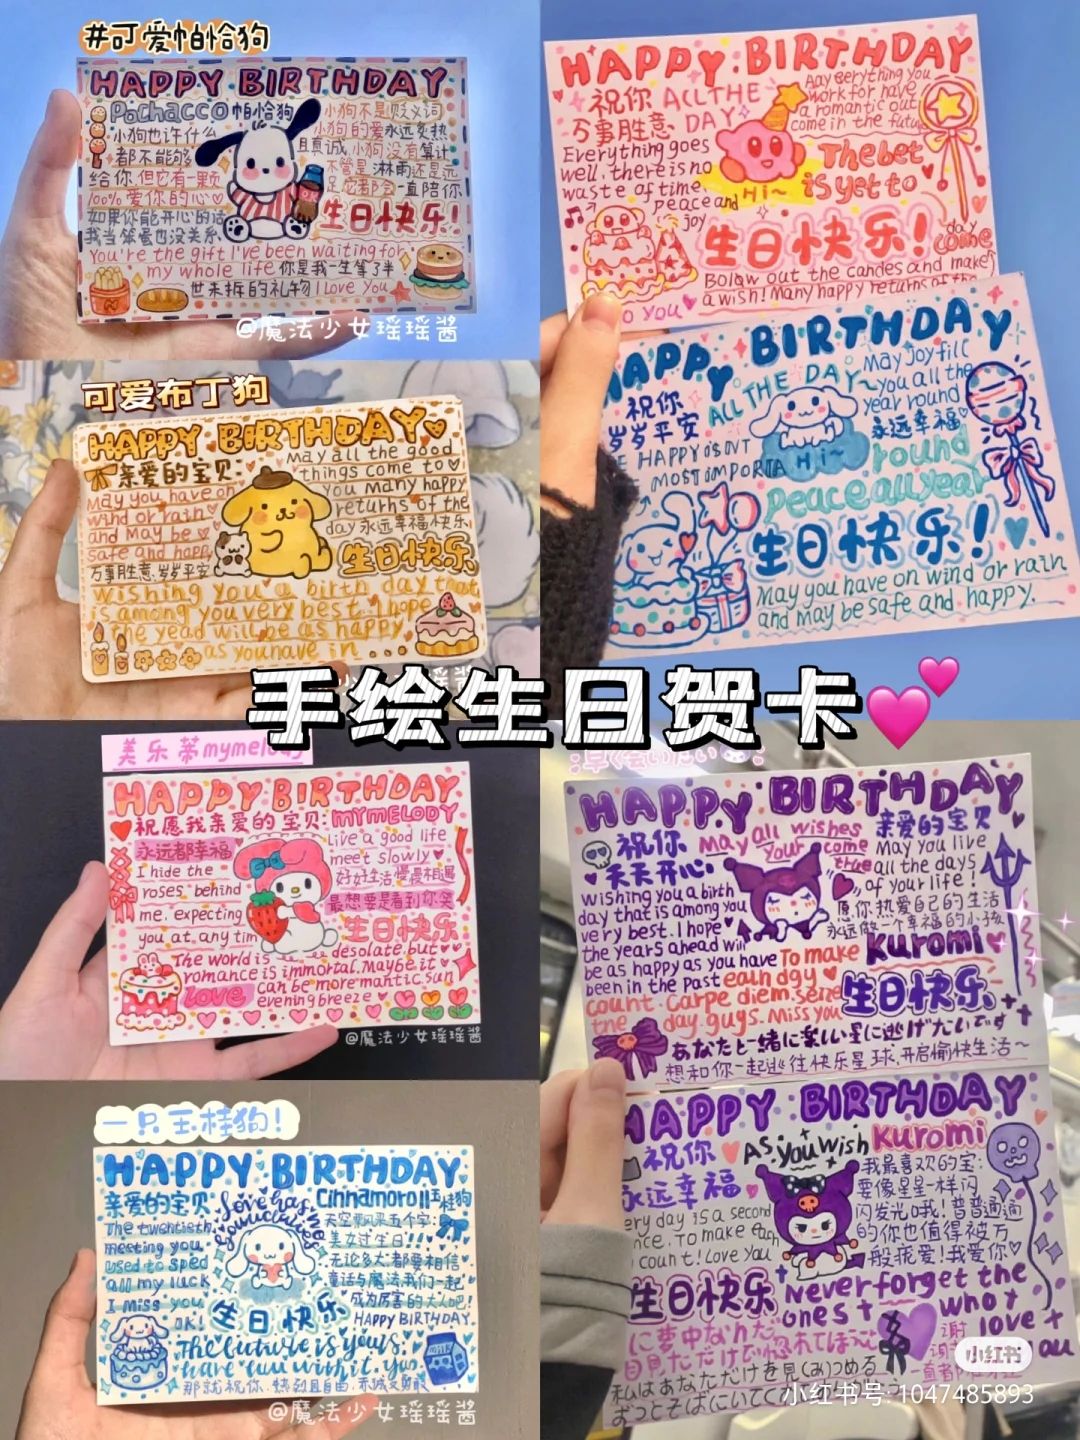 #可爱帕恰狗
HAPPY BIRTHDAY
Pochacco帕恰狗
小狗也许什么
都不能够
给你但它有一颗
100%爱你的心♡
如果你能开心的话
我当笨蛋也没关系
小狗不是贬义词
小狗的爱永远炙热
且真诚 小狗没有算计
不管是 淋雨还是远
足它都会一直陪你
生日快乐!
You're the gift I've been waiting for
my whole life 你是我一生等了半
世未拆的礼物 I Love You
@魔法少女瑶瑶酱
HAPPY BIRTHDAY
祝你 ALL THE
万事胜意 DAY
Everything goes
well. there is no
waste of time.
peace and
joy
Hi~
work for have
a romantic out
come in the futu
The bet
is yet to
come
day
生日快乐!
Bolow out the candes and make
a wish! Many happy returns of the
to you
可爱布丁狗
HAPPY BIRTHDAY
亲爱的宝贝:
May you have on
wind or rain
and May be
safe and happy
万事胜意 岁岁平安
May all the good
things come to
you Many happy
returns of the
day 永远幸福快乐
生日快乐
wishing you a birth day that
is among you very best. I hope
the yead will be as happy
as you have in ...
HAPPY BIRTHDAY
祝你
岁岁平安
ALL THE DAY~
E HAPPY IS NT
MOST IMPORTA
Hi~
May joy fill
you all the
year round
永远幸福
round
peace all year
生日快乐!
May you have on wind or rain
and may be safe and happy.
手绘生日贺卡💕
美乐蒂mymelody
HAPPY BIRTHDAY
祝愿我亲爱的宝贝: MYMELODY
永远都幸福
I hide the
roses. behind
me. expecting
you at any tim
Live a good life
meet slowly
好好生活 慢慢相遇
最想要是看到你笑
生日快乐
The world is desolate. but
romance is immortal. Maybe it
love can be more mantic. sun
evening breeze
@魔法少女瑶瑶酱
早く会いたい
HAPPY BIRTHDAY
祝你
天天开心
May all wishes
your come
true
亲爱的宝贝
May you live
all the days
of your life!
愿你热爱自己的生活
永远做一个幸福的小孩
wishing you a birth
day that is among you
very best. I hope
the years ahead will
be as happy as you have
been in the past
To make
each dgy
count. Carpe diem. seize
the day. guys. Miss you
Kuromi
生日快乐
あなたと一緒に楽しい星に逃げたいです
想和你一起逃往快乐星球,开启愉快生活~
一只玉桂狗!
HAPPY BIRTHDAY
亲爱的宝贝
The twentieth
meeting you
used to sped
all my luck
I miss you
OK!
Love has no
Cinnamoroll玉桂狗
天空飘来五个字:
美女过生日!!!
无论多大都要相信
童话与魔法我们一起
成为厉害的大人吧!
生日快乐
HAPPY BIRTHDAY
The future is yours.
have fun with it.
那就祝你,热烈且自由,赤诚又勇敢
MILK
@魔法少女瑶瑶酱
HAPPY BIRTHDAY
祝你
永远幸福
As you wish
Kuromi
ery day is a second
nce. To make each
count! Love you
我最喜欢的宝:
要像星星一样闪
闪发光哦!普普通通
的你也值得被万
般我爱!我爱你♡
生日快乐
Never forget the
ones + who +
love +
ou
に夢中なんだ
私はあなただけを見(み)つめる
ずっとそばにいて
小红书
小红书号: 1047485893